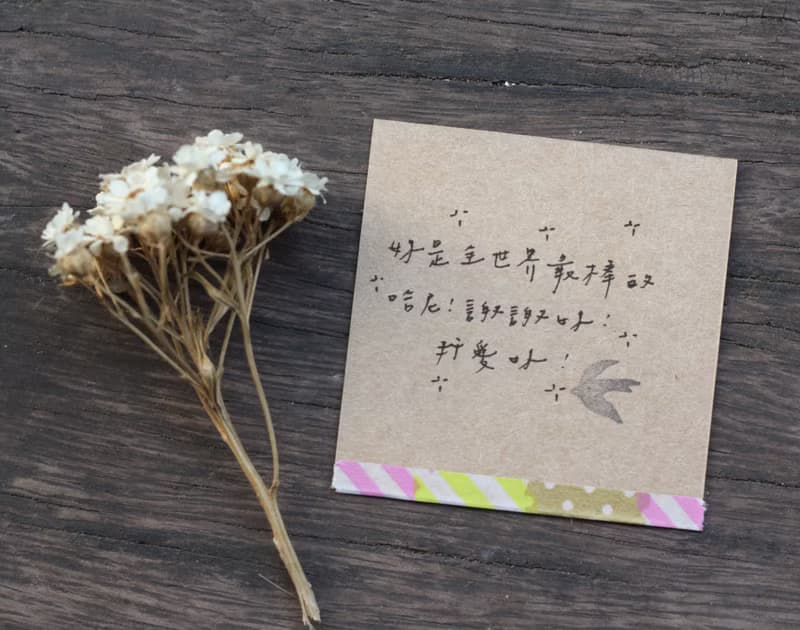 妳是全世界最棒的
哈尼！謝謝妳！
我愛妳！